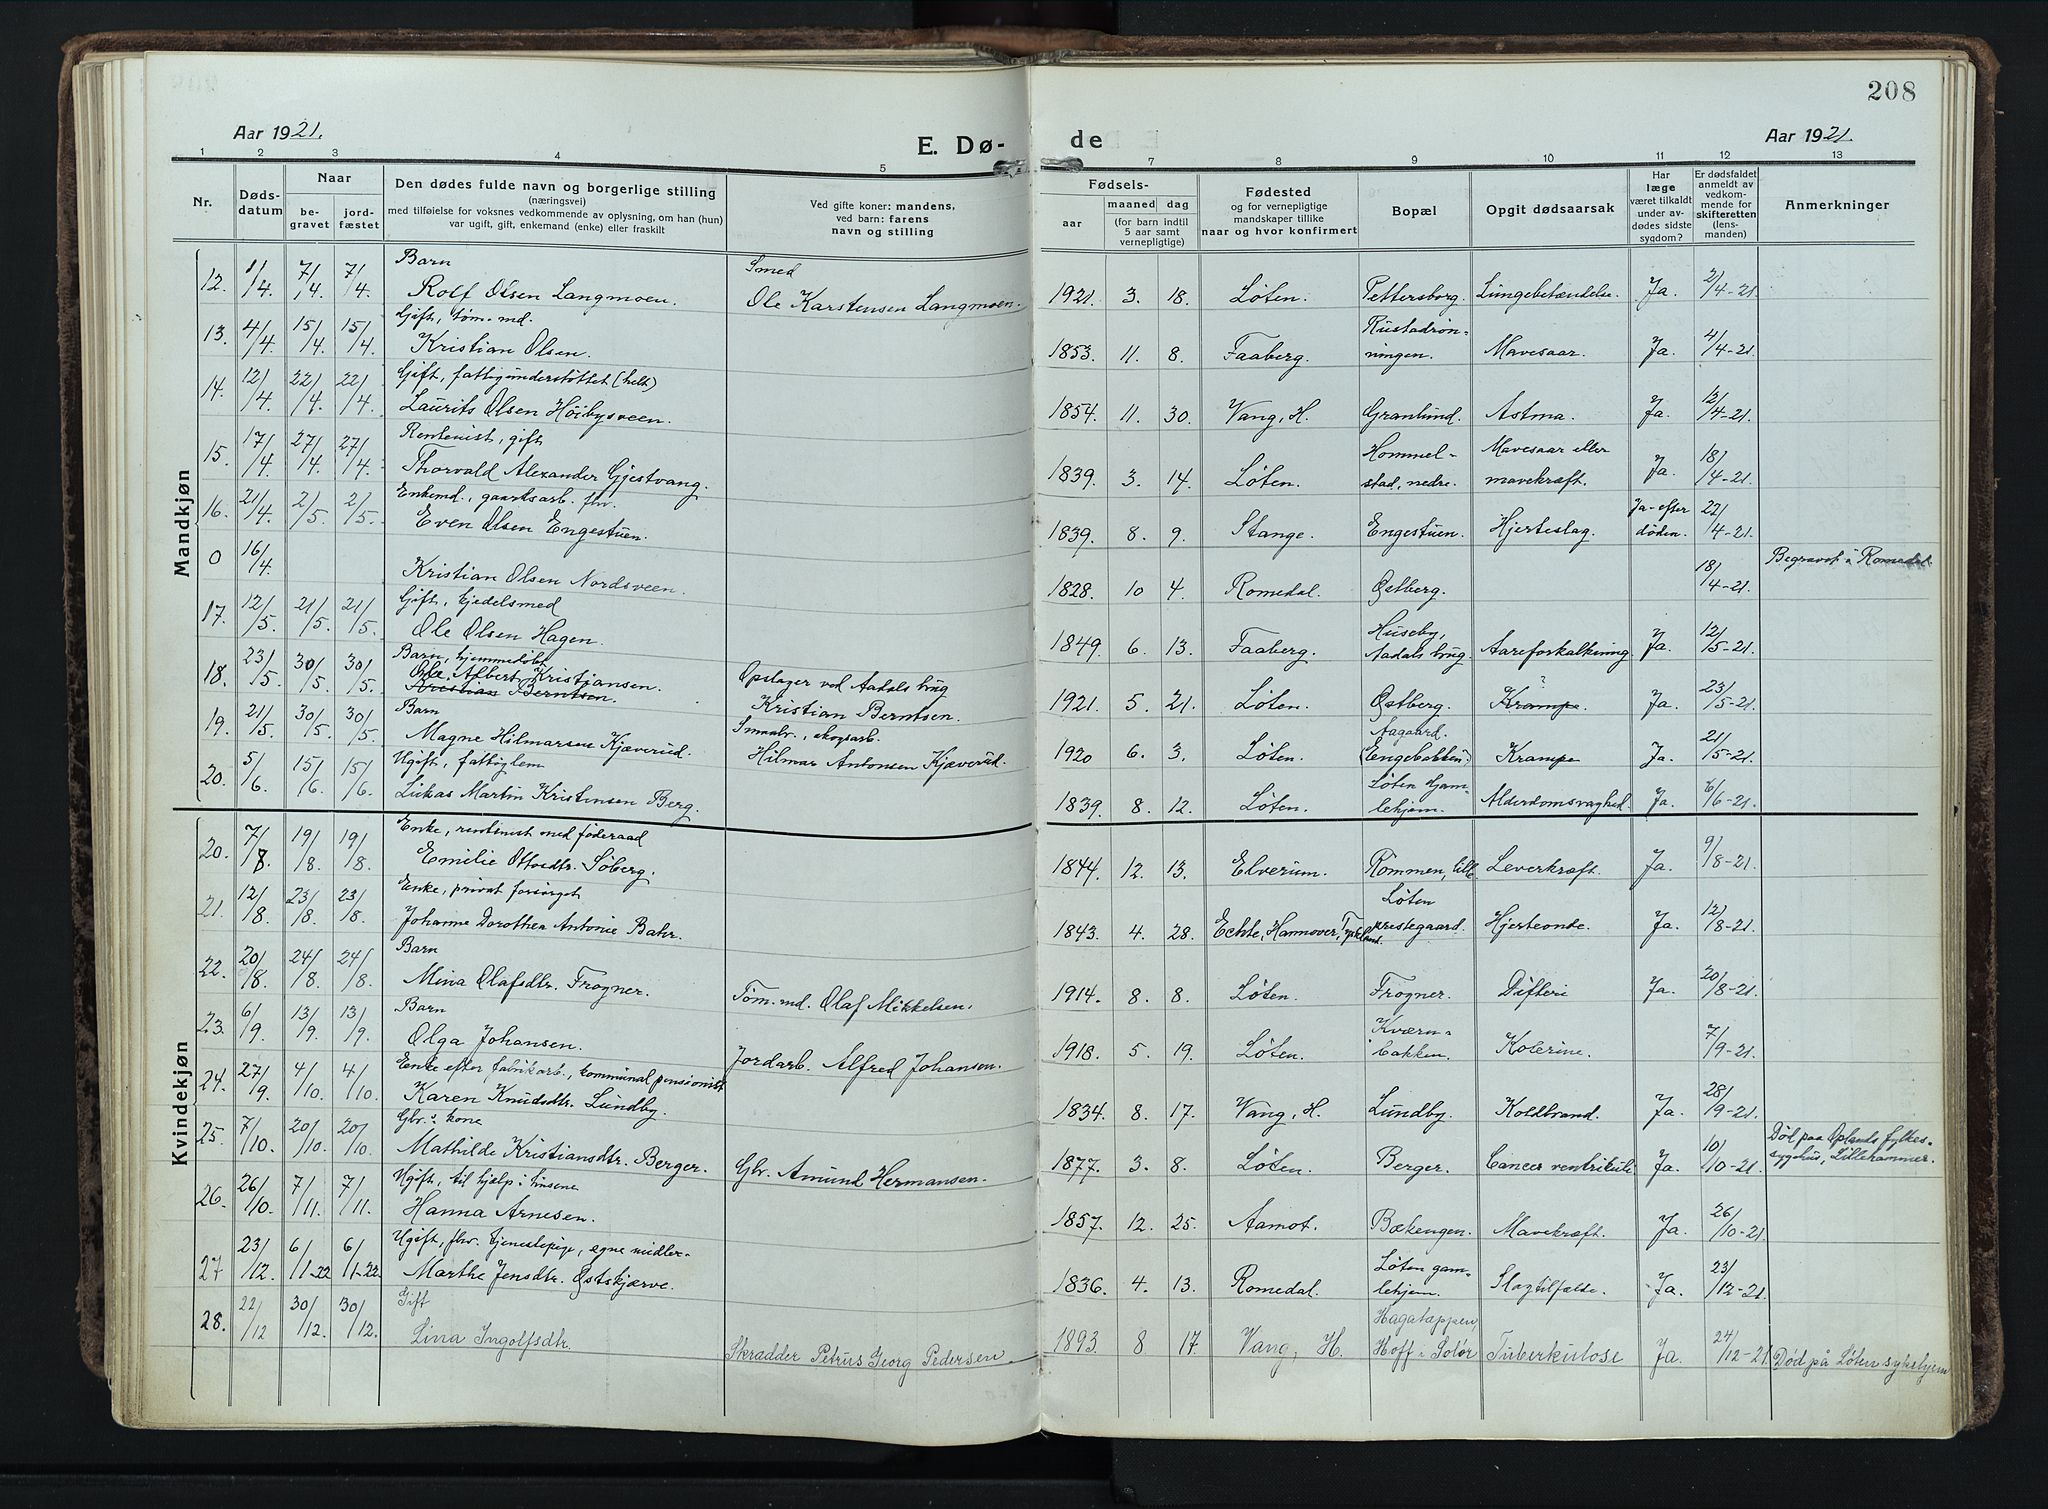 208
Aar 1921.
E. Dø-
de
Aar 1921.
1 2 3 4 5 7 8 9 10 11 12 13
Nr.
Døds-
datum
Naar
be-
gravet
jord-
fæstet
Den dødes fulde navn og borgerlige stilling
(næringsvei)
med tilføielse for voksnes vedkommende av oplysning, om han (hun)
var ugift, gift, enkemand (enke) eller fraskilt
Ved gifte koner: mandens,
ved barn: farens
navn og stilling
Fødsels-
aar
maaned dag
(for barn indtil
5 aar samt
vernepligtige)
Fødested
og for vernepligtige
mandskaper tillike
naar og hvor konfirmert
Bopæl
Opgit dødsaarsak
Har
læge
været tilkaldt
under av-
dødes sidste
sygdom?
Er dødsfaldet
anmeldt av
vedkom-
mende for
skifteretten
(lens-
manden)
Anmerkninger
Mandkjøn
12. 1/4 7/4. 7/4. Barn
Rolf Olsen Langmoen. Smed
Ole Karstensen Langmoen. 1921. 3. 18. Løten. Pettersborg. Lungebetændelse. Ja. 2/4-21.
13. 4/4 15/4 15/4 Gift, tøm. md.
Kristian Olsen. 1853. 11. 8. Faaberg. Rustadrøn-
ningen. Mavesaar. Ja. 4/4-21.
14. 12/4 22/4 22/4 Gift, fattigunderstøttet (helt)
Laurits Olsen Høibysveen. 1854. 11. 30. Vang, H. Granlund. Astma. Ja. 12/4-21.
15. 17/4 27/4 27/4. Rentenist, gift
Thorvald Alexander Gjestvang. 1839. 3. 14. Løten. Hommel-
stad, nedre. Mavesaar eller
mavekræft. Ja. 18/4-21.
16. 21/4. 2/5 2/5. Enkemd., gaardsarb. fhv.
Even Olsen Engestuen. 1839. 8. 9. Stange. Engestuen. Hjerteslag. Ja - efter
døden. 22/4-21.
0 16/4 Kristian Olsen Nordsveen. 1828. 10 4. Romedal. Østberg. 18/4-21. Begravet i Romedal.
17. 12/5. 21/5. 21/5. Gift, kjedelsmed
Ole Olsen Hagen. 1849. 6. 13. Faaberg. Huseby,
Aadals brug. Aareforkalkning Ja. 12/5-21.
18. 23/5. 30/5. 30/5. Barn, hjemmedøbt
Ole Albert Kristiansen.
Kristian Berntsen. Opslager ved Aadals brug
Kristian Berntsen. 1921. 5. 21. Løten. Østberg. Krampe. ? Ja. 23/5-21.
19. 21/5. 30/5. 30/5. Barn
Magne Hilmarsen Kjæverud. Smaabr., skogsarb.
Hilmar Antonsen Kjæverud. 1920 6. 3. Løten. Aagaard.
(Engebakken.) Krampe Ja. 21/5-21.
20. 5/6. 15/6 15/6. Ugift, fattiglem
Lukas Martin Kristensen Berg. 1839. 8. 12. Løten. Løten Gam-
lehjem. Alderdomsvaghed. Ja. 6/6-21.
Kvindekjøn
20. 7/8. 19/8. 19/8. Enke, rentenist med føderaad
Emilie Ottosdtr. Søberg. 1844. 12. 13. Elverum. Rommen, lille Leverkræft. Ja. 9/8-21.
21. 12/8. 23/8. 23/8. Enke, privat forsørget
Johanne Dorothea Antonie Bahr. 1843. 4. 28. Echte, Hannover, Tyskland. Løten
prestegaard. Hjerteonde. Ja. 12/8-21.
22. 20/8. 24/8. 24/8. Barn
Mina Olafsdtr. Frogner. Tøm. md. Olaf Mikkelsen. 1914. 8. 8. Løten. Frogner. Difteri Ja. 20/8-21.
23. 6/9. 13/9. 13/9. Barn
Olga Johansen. Jordarb. Alfred Johansen. 1918. 5. 19. Løten. Kværn-
bakken. Kolerine. Ja. 7/9-21.
24. 27/9. 4/10. 4/10. Enke efter fabrikarb., kommunal pensionist
Karen Knudsdtr. Lundby. 1834. 8. 17. Vang, H. Lundby. Koldbrand. Ja. 28/9-21.
25. 7/10. 20/10. 20/10. Gbr.s kone
Mathilde Kristiansdtr. Berger. Gbr. Amund Hermansen. 1877. 3. 8. Løten. Berger. Cancer ventrikuli Ja. 10/10-21. Død paa Oplands fylkes-
sygehus, Lillehammer.
26. 26/10. 7/11. 7/11. Ugift, til hjælp i husene
Hanna Arnesen. 1857. 12. 25. Aamot. Bækengen. Mavekræft. Ja. 26/10-21.
27 23/12. 6/1-22 6/1-22. Ugift, fhv. tjenestepige, egne midler.
Marthe Jensdtr. Østskjærve. 1836. 4. 13. Romedal. Løten gam-
lehjem. Slagtilfælde. Ja. 23/12-21.
28. 22/12 30/12. 30/12. Gift
Lina Ingolfsdtr. Skrædder Petrus Georg Pedersen. 1893. 8 17 Vang, H. Hagatæppen,
Hoff i Solør Tuberkulose Ja. 24/12-21. Død på Løten sykehjem